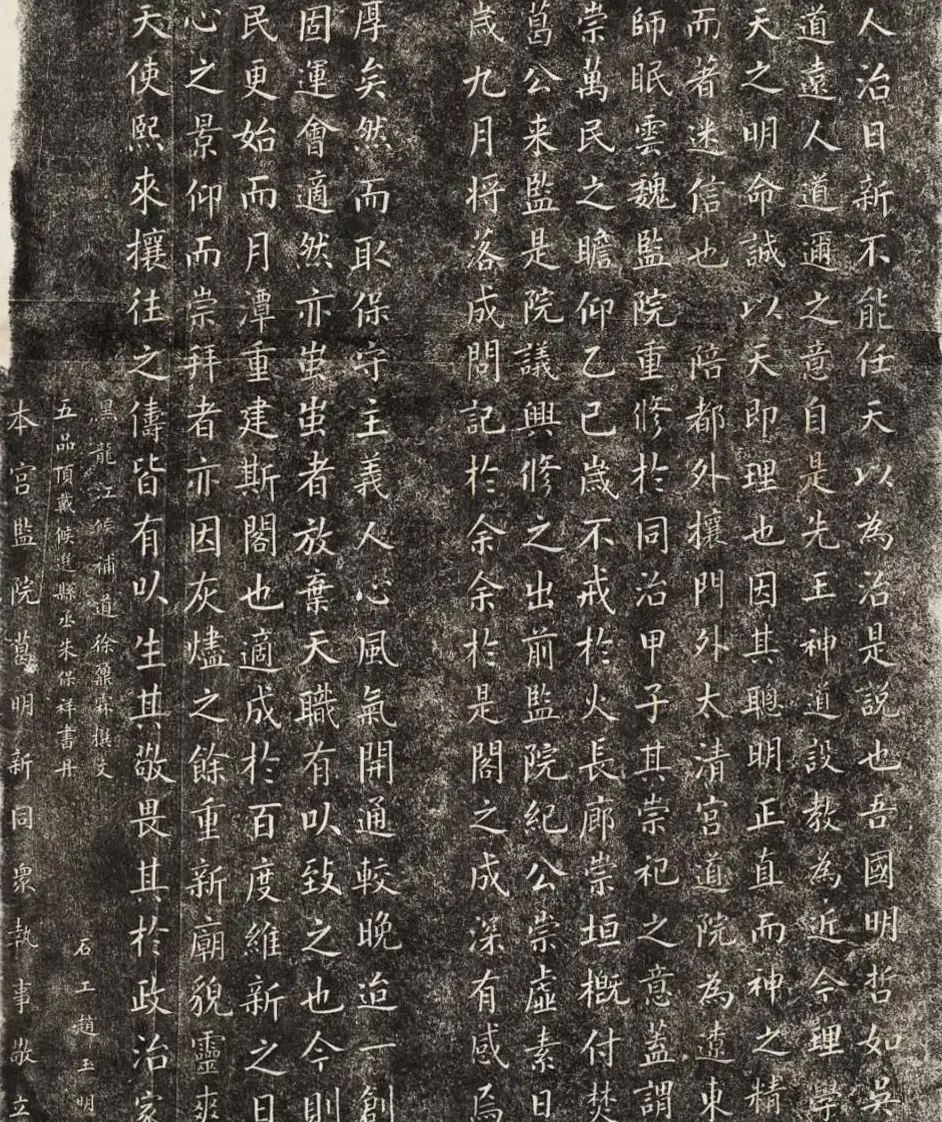 人治日新不能任天以為治是說也吾國明哲如吳
道遠人道邇之意自是先王神道設教為近今理學
天之明命誠以天即理也因其聰明正直而神之精
而著迷信也陪都外攘門外太清宮道院為遼東
師眠雲魏監院重修於同治甲子其崇祀之意蓋謂
崇萬民之瞻仰乙巳歲不戒於火長廊崇垣概付焚
葛公来監是院議興修之出前監院紀公崇虛素日
歲九月将落成問記於余余於是閣之成深有感焉
厚矣然而取保守主義人心風氣開通較晚迨一創
固運會適然亦蚩蚩者放棄天職有以致之也今則
民更始而月潭重建斯閣也適成於百度維新之日
心之景仰而崇拜者亦因灰燼之餘重新廟貌靈爽
天使熙來攘往之儔皆有以生其敬畏其於政治家
黑龍江候補道徐鼐霖撰文
五品頂戴候選縣丞朱保祥書丹
石工趙玉明
本宮監院葛明新同眾執事敬立